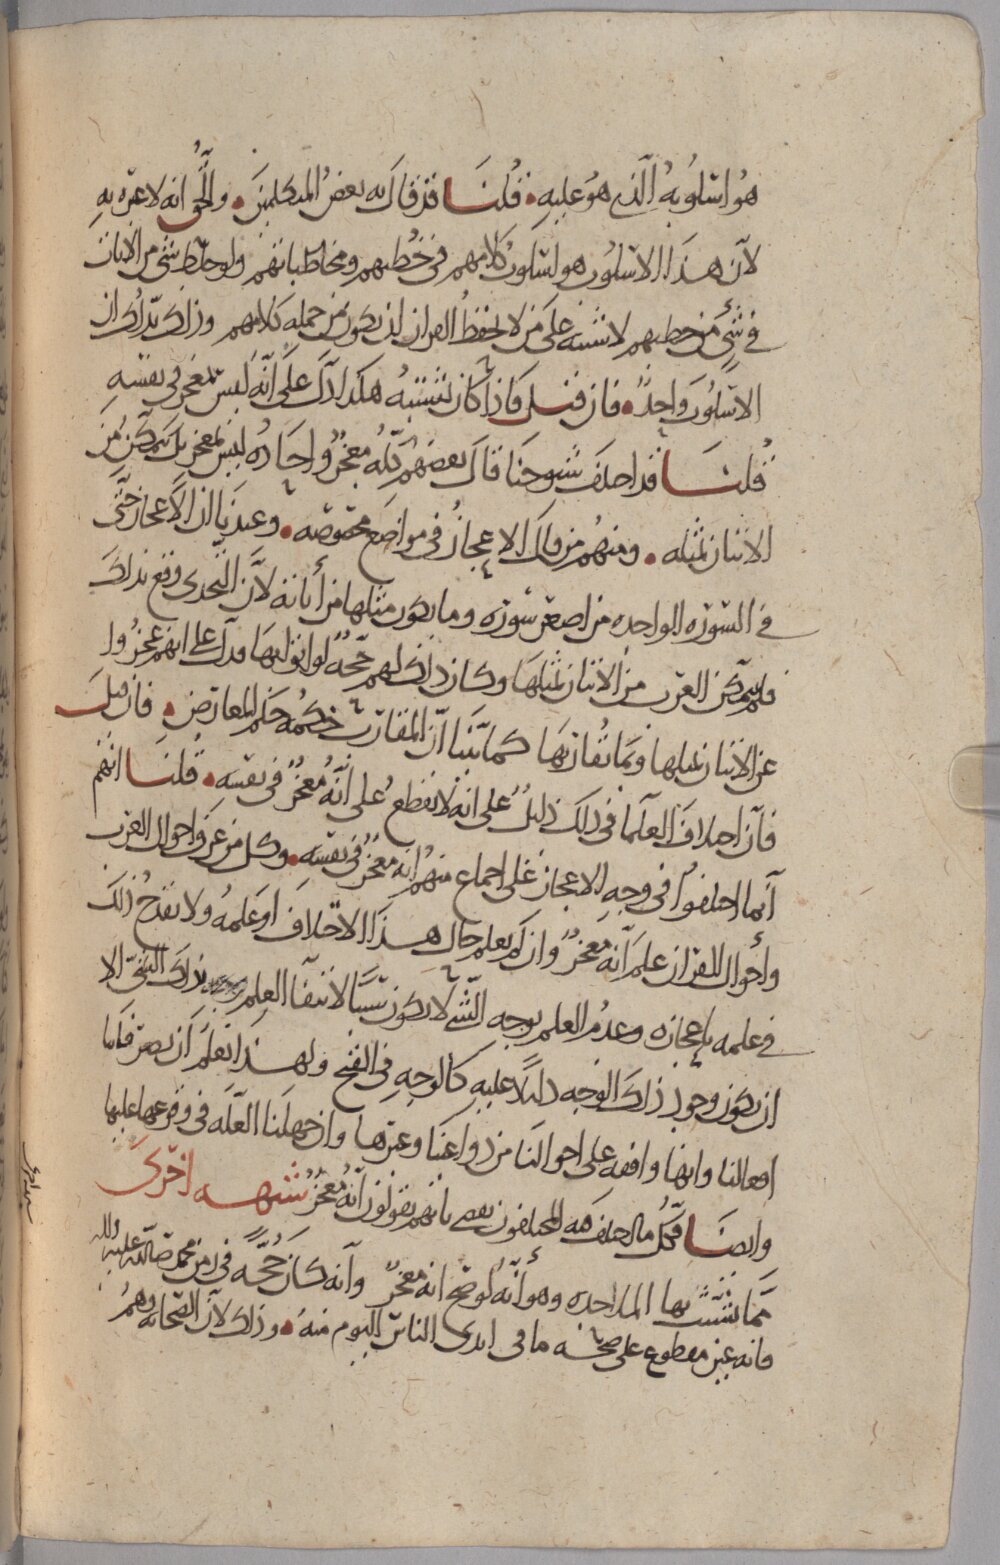 هو اسلوبه الذي هو عليه • قلنا قد قال به بعض المتكلمين • والحق انه لا عبرة به
لأن هذا الاسلوب هو اسلوب كلامهم في خطبهم ومخاطباتهم ولو خلط شي من الايات
في شيء من خطبهم لاشتبه على من لا يحفظ القران ان يكون من جملة كلامهم وذلك يدلك ان
الاسلوب واحد • فان قيل فاذا كان يشتبه هكذا دل على انه ليس بمعجز في نفسه
قلنا قد اختلف شيوخنا قال بعضهم كله معجز واحاده ليس بمعجز بل يتمكن من
الاتيان بمثله • ومنهم من قال الاعجاز في مواضع مخصوصه • وعندنا ان الاعجاز حتى
في السورة الواحدة من اصغر سورة وما يكون مثلها من أياته لأن التحدي وقع بذلك
فلم يتمكن العرب من الاتيان بمثلها وكان ذلك لهم حجة لو اتوا بها فدل على انهم عجزوا
عن الاتيان بمثلها وبما يقاربها كما بينا ان المقارب حكمه حكم المعارض • فان قيل
فان اختلاف العلما في ذلك دليل على انه لا يقطع على أنه معجز في نفسه • قلنا انهم
انما اختلفوا في وجه الاعجاز على اجماع منهم انه معجز في نفسه • وكل من عرف احوال العرب
وأحوال القران علم أنه معجز وان لم يعلم حال هذا الاختلاف او علمه ولا يقدح ذلك
في علمه باعجازه وعدم العلم بوجه الشي لا يكون سببا لانتفا العلم بذلك الشي الا
ان يكون وجود ذلك الوجه دليلا عليه كالوجه في القبح ولهذا نعلم أن تصرفاتنا
افعالنا وانها واقعه على احوالنا من دواعينا وغيرها وان جهلنا العلة في وقوعها عليها
وايضا فكل ما اختلف فيه المختلفون يقضي بانهم يقولون انه معجز شبهه اخرى
مما تشبث بها الملاحده وهو أنه لو صح انه معجز وأنه كان حجة في زمن محمد صلى الله عليه واله
فانه غير مقطوع على صحة ما في ايدي الناس اليوم منه • وذلك لأن الصحابه وهم
شبهه اخرى